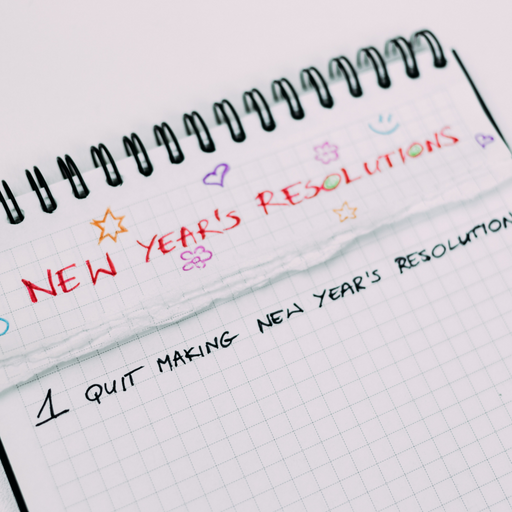 NEW YEAR'S RESOLUTIONS
1 QUIT MAKING NEW YEAR'S RESOLUTION